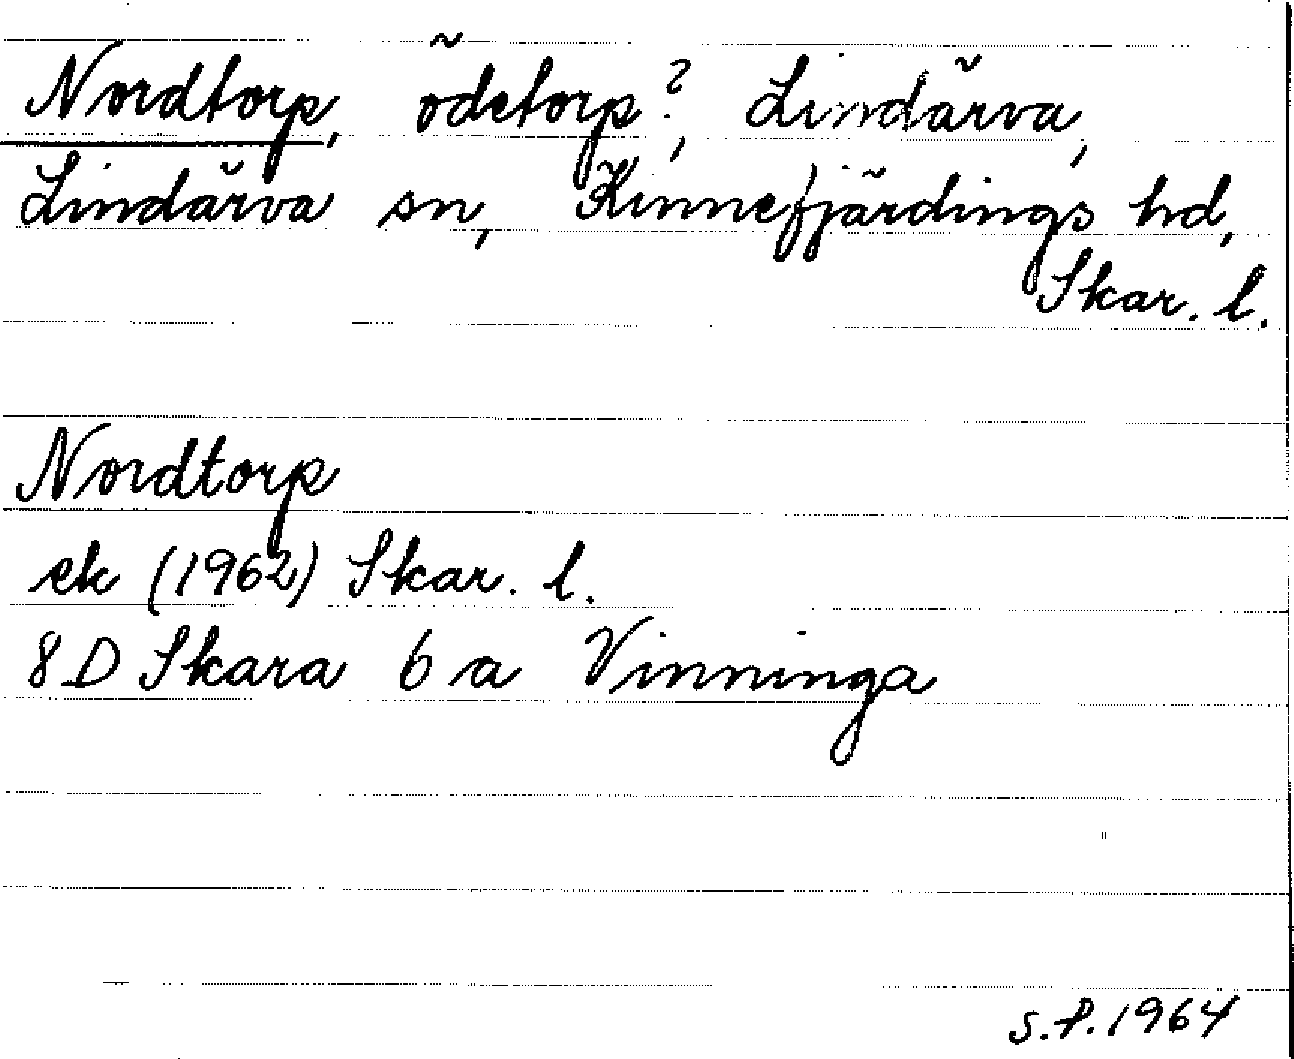 Nordtorp, ödetorp?, Lindärva,
Lindärva sn, Kinnefjärdings hd,
Skar. l.
Nordtorp
ek (1962) Skar. l.
8 D Skara 6 a Vinninga
S.P. 1964